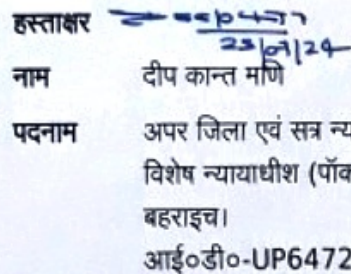 हस्ताक्षर
23/01/24
नाम दीप कान्त मणि
पदनाम अपर जिला एवं सत्र
विशेष न्यायाधीश
बहराइच।
आई०डी०-UP6472